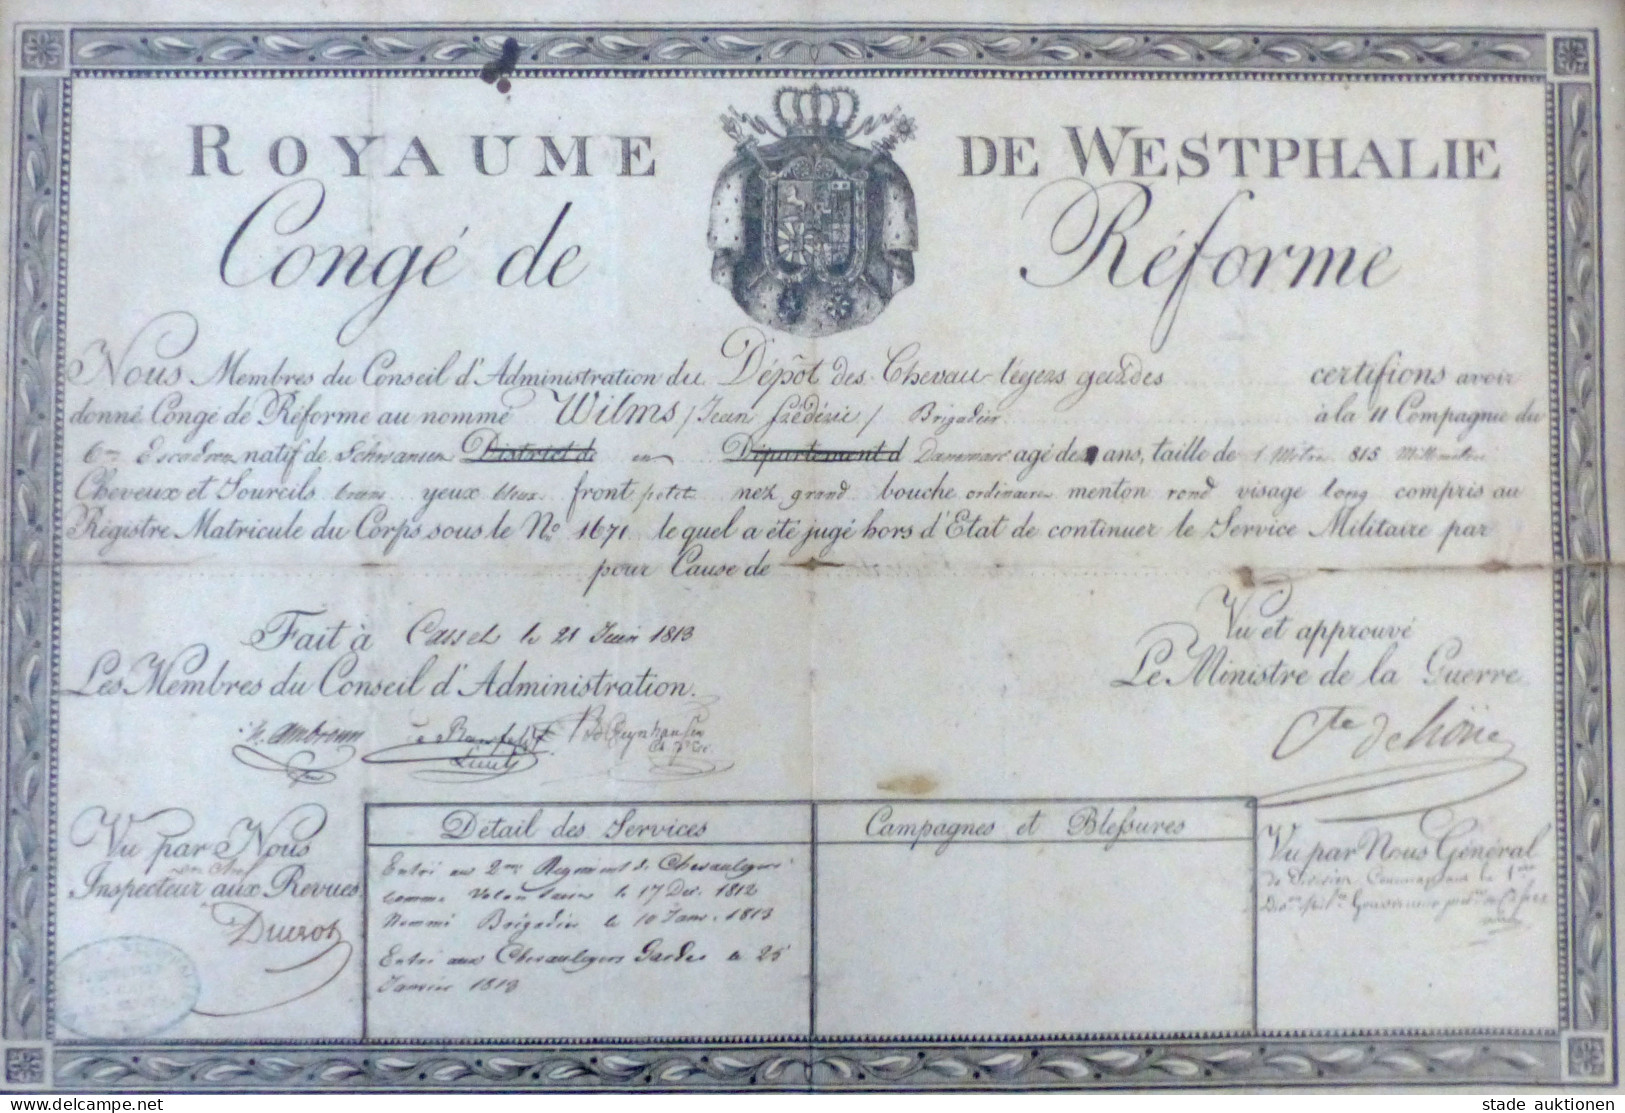 ROYAUME DE WESTPHALIE
Congé de Réforme
Nous Membres du Conseil d'Administration du Dépôt des Chevau-légers gardes certifions avoir
donné Congé de Réforme au nommé Wilms / Jean Frédéric / Brigadier à la 11 Compagnie du
6me Escadron natif de Schwansen District de en Département d Dannemarc agé de ans, taille de 1 Mètre 815 Millimètres
Cheveux et Sourcils bruns yeux bleus front petit nez grand bouche ordinaire menton rond visage long compris au
Régistre Matricule du Corps sous le No. 1671 le quel a été jugé hors d'Etat de continuer le Service Militaire par
pour Cause de
Fait à Cassel le 21 Juin 1813
Les Membres du Conseil d'Administration.
Vu et approuvé
Le Ministre de la Guerre
Cte de höne
Vu par Nous
en chef
Inspecteur aux Revues
Ducrot
Détail des Services
Entré au 2me Regiment de Chevaulegers
comme Volontaire le 17 Dec. 1812
Nommé Brigadier le 10 Janv. 1813
Entré aux Chevaulegers Gardes le 25
Janvier 1813
Campagnes et Blessures
Vu par Nous Général
de Division, Commandant la 1ere
delcampe.net
stade auktionen